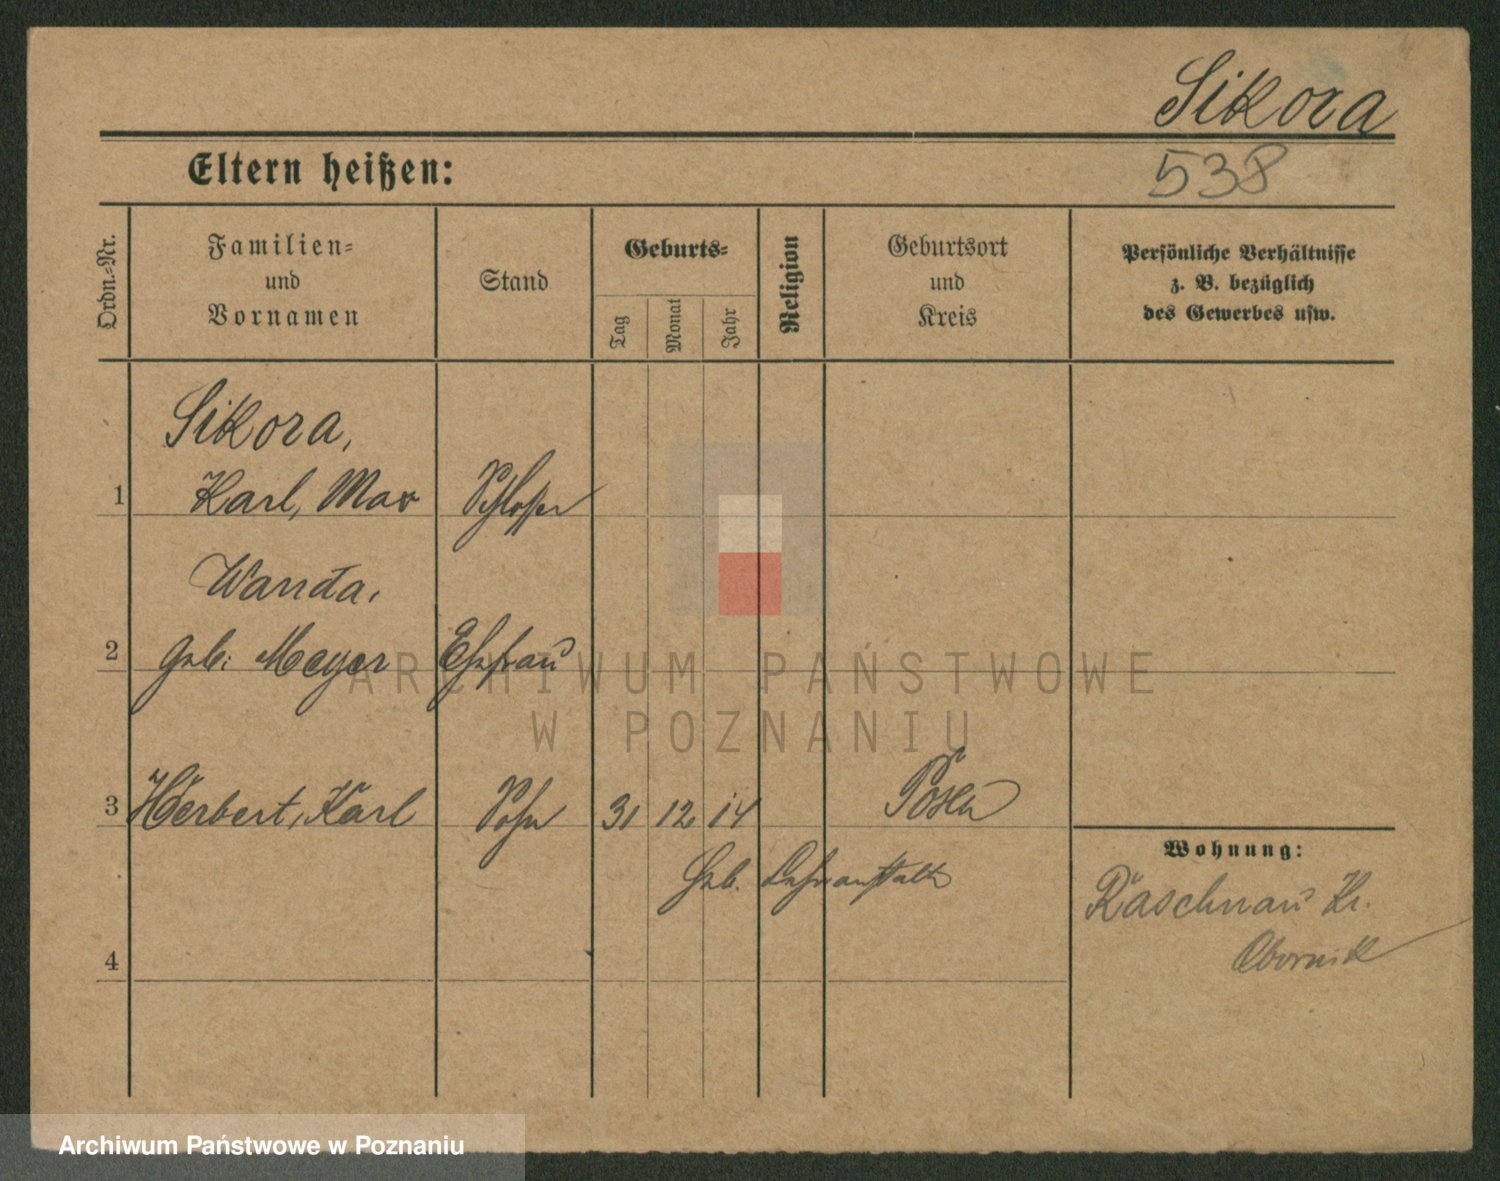 Sikora
538
Eltern heißen:
Ordn.-Nr.
Familien-
und
Vornamen
Stand
Geburts-
Tag
Monat
Jahr
Religion
Geburtsort
und
Kreis
Persönliche Verhältnisse
z. B. bezüglich
des Gewerbes usw.
Sikora,
1 Karl, Max Schlosser
Wanda,
2 geb: Meyer Ehefrau
ARCHIWUM PAŃSTWOWE
W POZNANIU
3 Herbert, Karl Sohn 31 12 14 Posen
Wohnung:
Geb.
Raschnau Kr.
Obornik
4
Archiwum Państwowe w Poznaniu